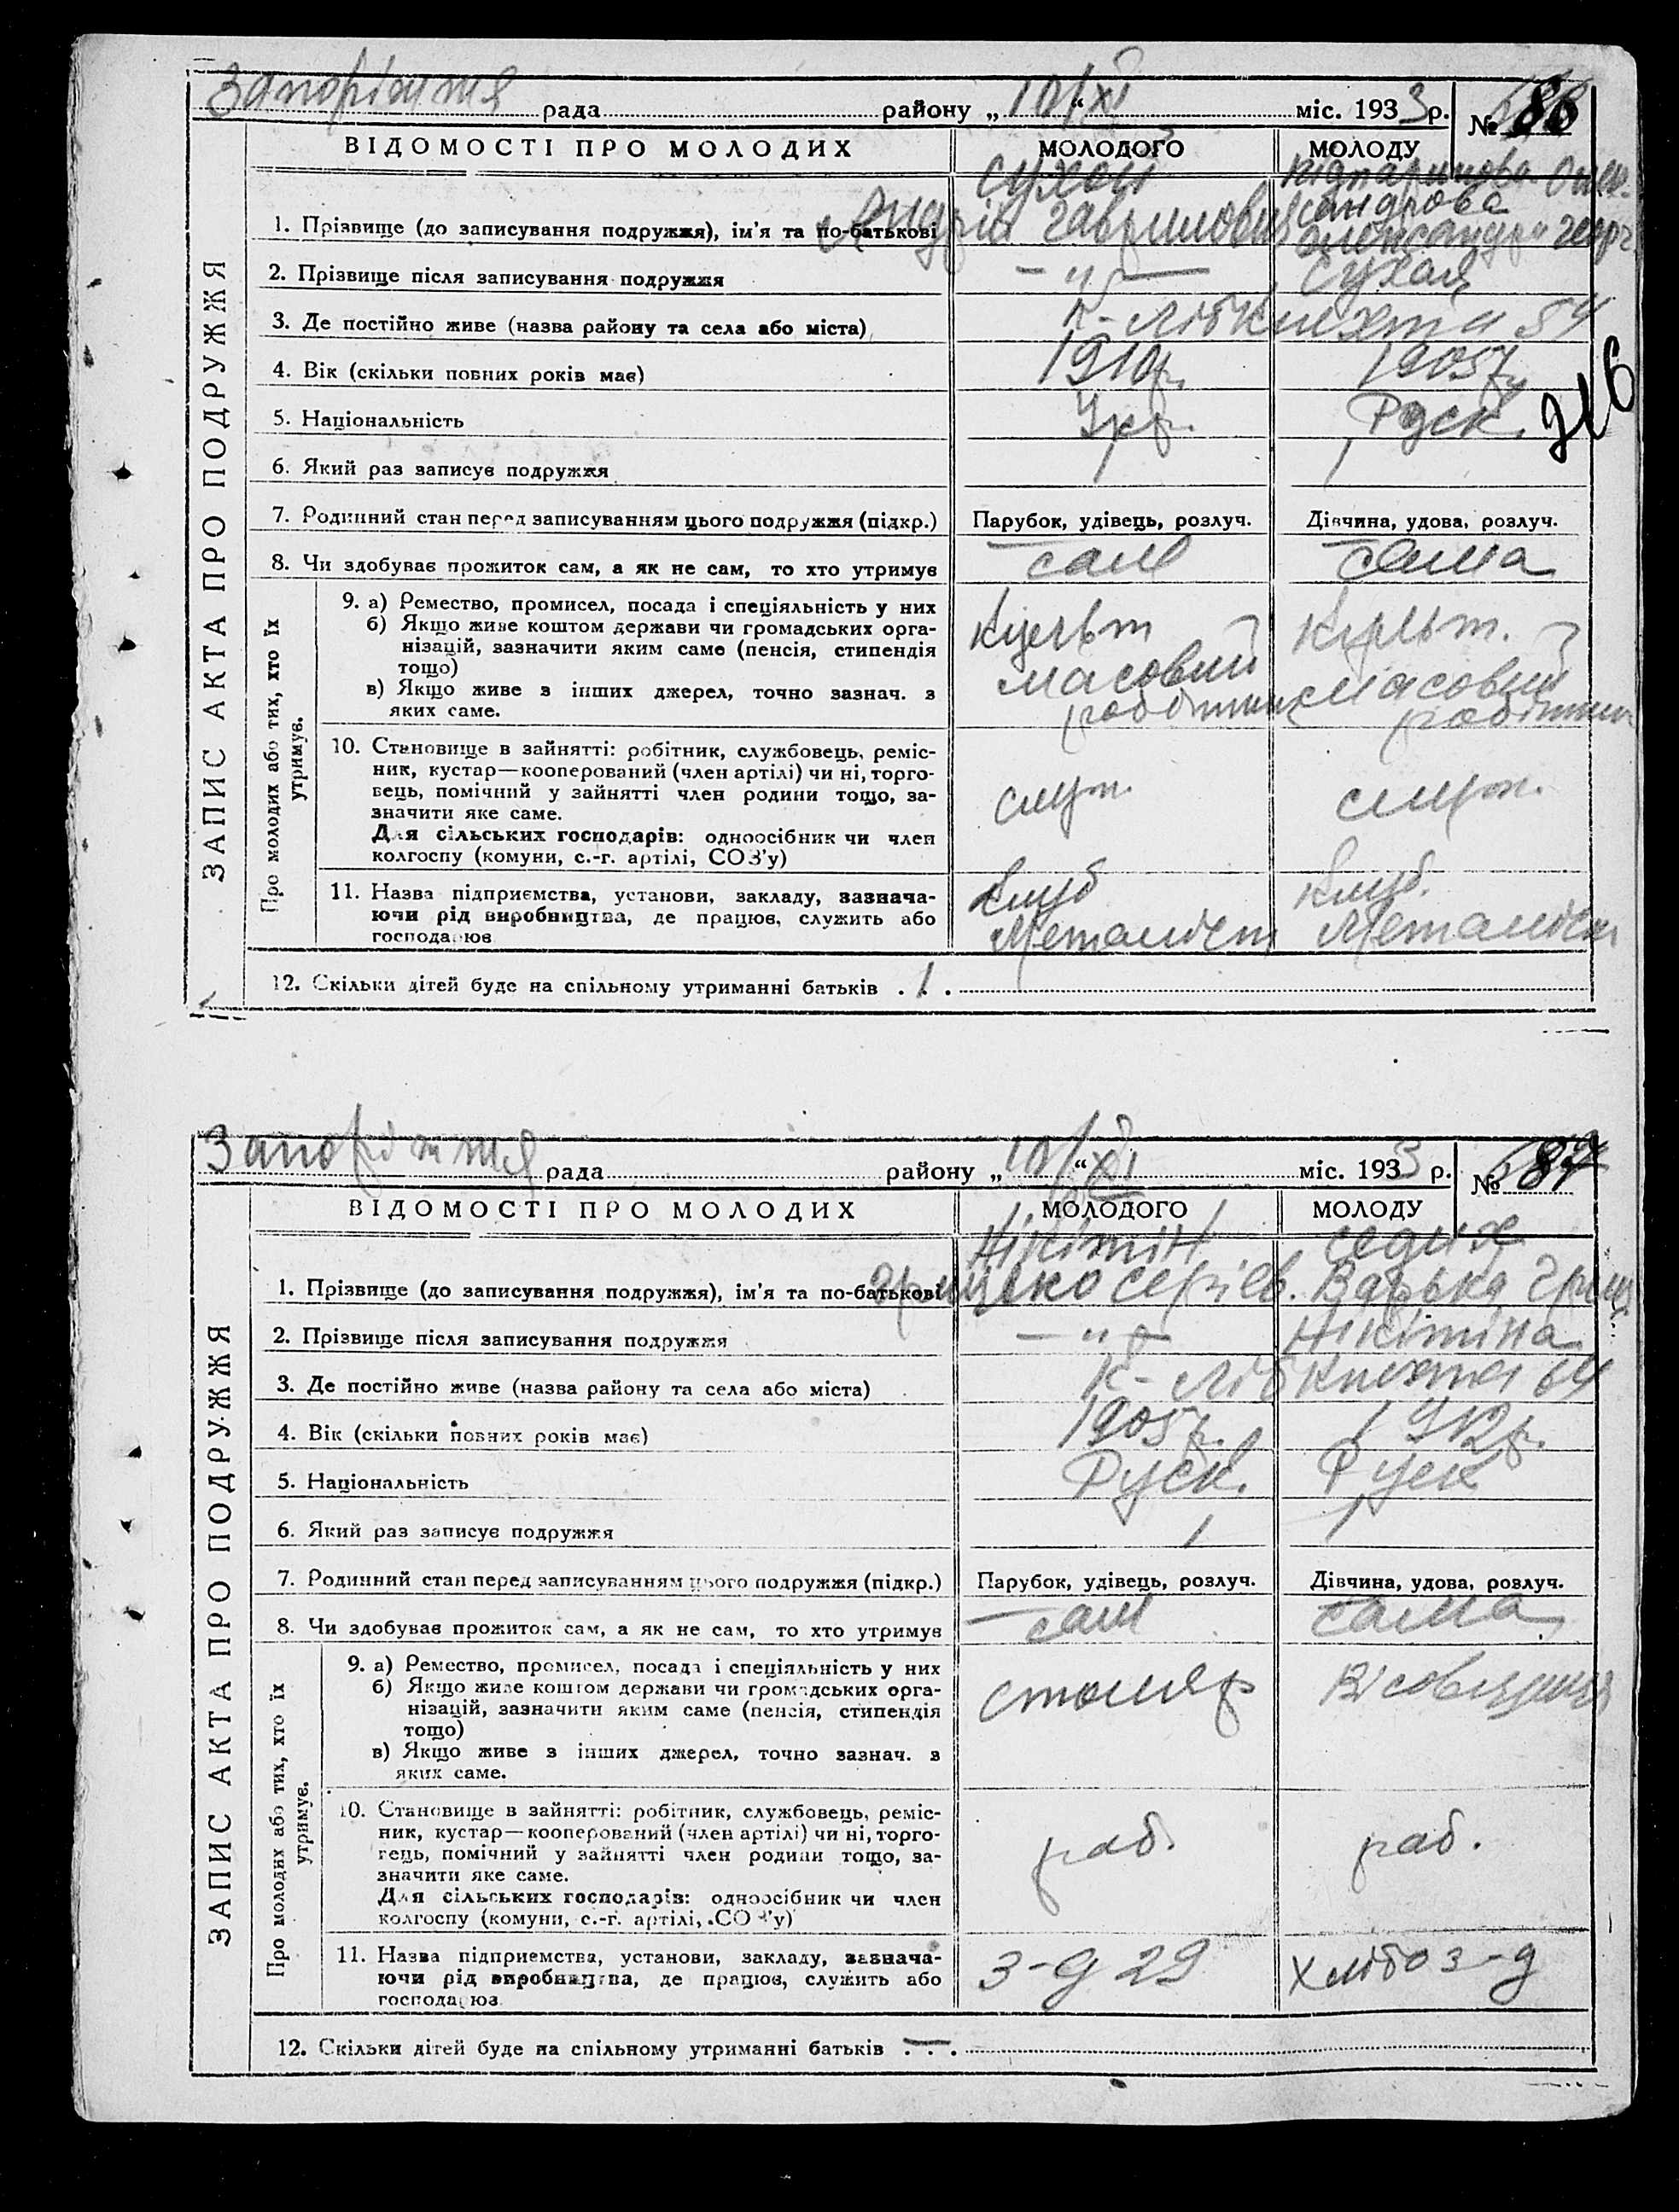 Запоріжжя рада района „10/XI“ міс. 1933 р. № 86
ВІДОМОСТІ ПРО МОЛОДИХ МОЛОДОГО МОЛОДУ
ЗАПИС АКТА ПРО ПОДРУЖЖЯ
Сухой
1. Прізвище (до записування подружжя), ім'я та по-батькові Андрій Гаврилович
2. Прізвище після записування подружжя — „ — Сухая
3. Де постійно живе (назва району та села або міста) К-Лібкнехта 54
4. Вік (скільки повних років має) 1910р. 1905р.
216
5. Національність Укр. Руск.
6. Який раз записує подружжя 1 1
7. Родинний стан перед записуванням цього подружжя (підкр.) Парубок, удівець, розлуч. Дівчина, удова, розлуч.
8. Чи здобуває прожиток сам, а як не сам, то хто утримує сам сама
Про молодих або тих, хто їх утримує.
9. а) Ремество, промисел, посада і спеціяльність у них
б) Якщо живе коштом держави чи громадських орга-
нізацій, зазначити яким саме (пенсія, стипендія
тощо)
в) Якщо живе з інших джерел, точно зазнач. з
яких саме.
Культ Культ.
масовий масовий
робітник робітник
10. Становище в зайнятті: робітник, службовець, реміс-
ник, кустар—кооперований (член артілі) чи ні, торго-
вець, помічний у зайнятті член родини тощо, за-
значити яке саме.
Для сільських господарів: одноосібник чи член
колгоспу (комуни, с.-г. артілі, СОЗ'у)
служ. служ.
11. Назва підприємства, установи, закладу, зазнача-
ючи рід виробництва, де працює, служить або
господарює
Клуб Клуб.
Металіст Металіст
12. Скільки дітей буде на спільному утриманні батьків . 1 .
Запоріжжя рада району „10/XI“ міс. 1933 р. № 87
ВІДОМОСТІ ПРО МОЛОДИХ МОЛОДОГО МОЛОДУ
ЗАПИС АКТА ПРО ПОДРУЖЖЯ
Нікітін Седих
1. Прізвище (до записування подружжя), ім'я та по-батькові Грицько Сергієв. Варька Гриц.
2. Прізвище після записування подружжя — „ — Нікітіна
3. Де постійно живе (назва району та села або міста) К-Лібкнехта 64
4. Вік (скільки повних років має) 1905р. 1912р.
5. Національність Руск. Руск
6. Який раз записує подружжя 1 1
7. Родинний стан перед записуванням цього подружжя (підкр.) Парубок, удівець, розлуч. Дівчина, удова, розлуч.
8. Чи здобуває прожиток сам, а як не сам, то хто утримує сам сама
Про молодих або тих, хто їх утримує.
9. а) Ремество, промисел, посада і спеціяльність у них
б) Якщо живе коштом держави чи громадських орга-
нізацій, зазначити яким саме (пенсія, стипендія
тощо)
в) Якщо живе з інших джерел, точно зазнач. з
яких саме.
столяр
10. Становище в зайнятті: робітник, службовець, реміс-
ник, кустар—кооперований (член артілі) чи ні, торго-
вець, помічний у зайнятті член родини тощо, за-
значити яке саме.
Для сільських господарів: одноосібник чи член
колгоспу (комуни, с.-г. артілі, СОЗ'у)
раб. раб.
11. Назва підприємства, установи, закладу, зазнача-
ючи рід виробництва, де працює, служить або
господарює
З-д 29 Хлібоз-д
12. Скільки дітей буде на спільному утриманні батьків . — .